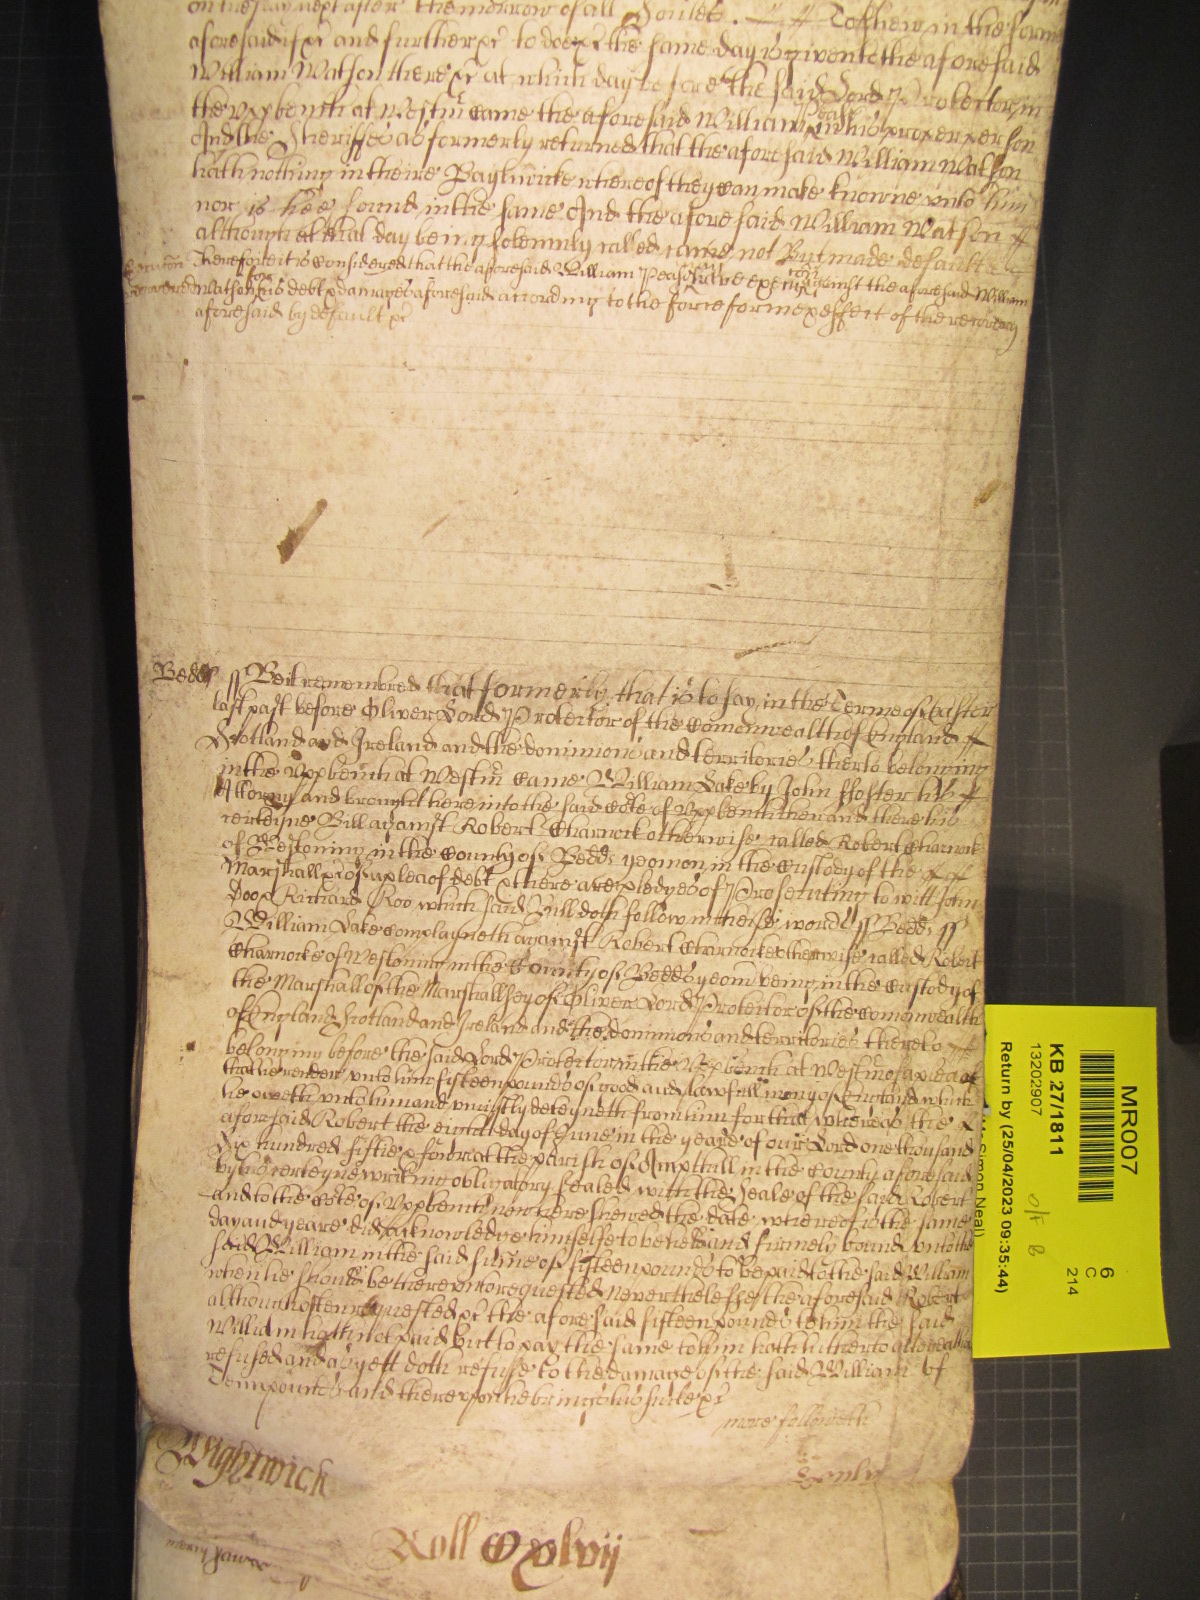 on tuesday next after the morrow of all Soules. To shew in the forme
aforesaid &c and further &c to doe &c the same day is given to the aforesaid
William Watson there &c at which day before the said Lord Protector in
the Upp benth at Westm came the aforesaid William in his proper person
And the Sheriffes as formerly returned that the aforesaid William Watson
hath nothing in theire Baylywicke whereof they can make knowne unto him
nor is hee found in the same And the aforesaid William Watson
although at that day being solemnly called came not But made default
Therefore it is considered that the aforesaid William have execucon against the aforesaid William
Watson for his debt & damages aforesaid according to the force forme & effect of the recovery
aforesaid by default &c
Bedds ss Be it remembred that formerly that is to say in the Terme of Easter
last past before Oliver Lord Protector of the Comonwealth of England
Scotland and Ireland and the dominions and territories therto belonging
in the Upp benth at Westm came William Lake by John ffoster his
Attorny and brought here into the said Cote of Upp benth then and there his
certeyne Bill against Robert Charnock otherwise called Robert Charnock
of Westoning in the County of Bedds yeoman in the Custody of the
Marshall &c of a plea of debt & there are pledges of Prosecuting to witt John
Doo & Richard Roo which said Bill doth follow in these words ss Bedds ss
William Lake complayneth against Robert Charnocke otherwise called Robert
Charnocke of Westoning in the County of Bedds yeom being in the Custody of
the Marshall of the Marshallsey of Oliver Lord Protector of the Comonwealth
of England Scotland and Ireland and the dominions and territories thereto
belonging before the said Lord Protector in the Upp benth at Westm of a plea of
that he render unto him fifteen pounds of good and lawfull mony of England which
he oweth unto him and uniustly deteyneth from him for that whereas the
aforesaid Robert the eighth day of June in the yeare of our Lord one thousand
Six hundred fiftie & fower at the parish of Ampthill in the County aforesaid
by his certeyne writing obligatory sealed with the Seale of the said Robert
and to the Cote of Upp benth now here shewed the date whereof is the same
day and yeare did acknowledge himselfe to be held and firmely bound unto the
said William in the said sume of fifteen pounds to be paid to the said William
when he should be there unto requested Neverthelesse the aforesaid Robert
although often requested &c the aforesaid fifteen pounds to him the said
William hath not paid But to pay the same to him hath hitherto
refused and as yett doth refuse to the damage of the said William of
Tenn pounds And thereupon he brings his suite &c
more followeth
Wightwick
Roll Cxlvij
MR007
6
C
214
KB 27/1811
13202907
Return by (25/04/2023 09:35:44)
Simon Neal)